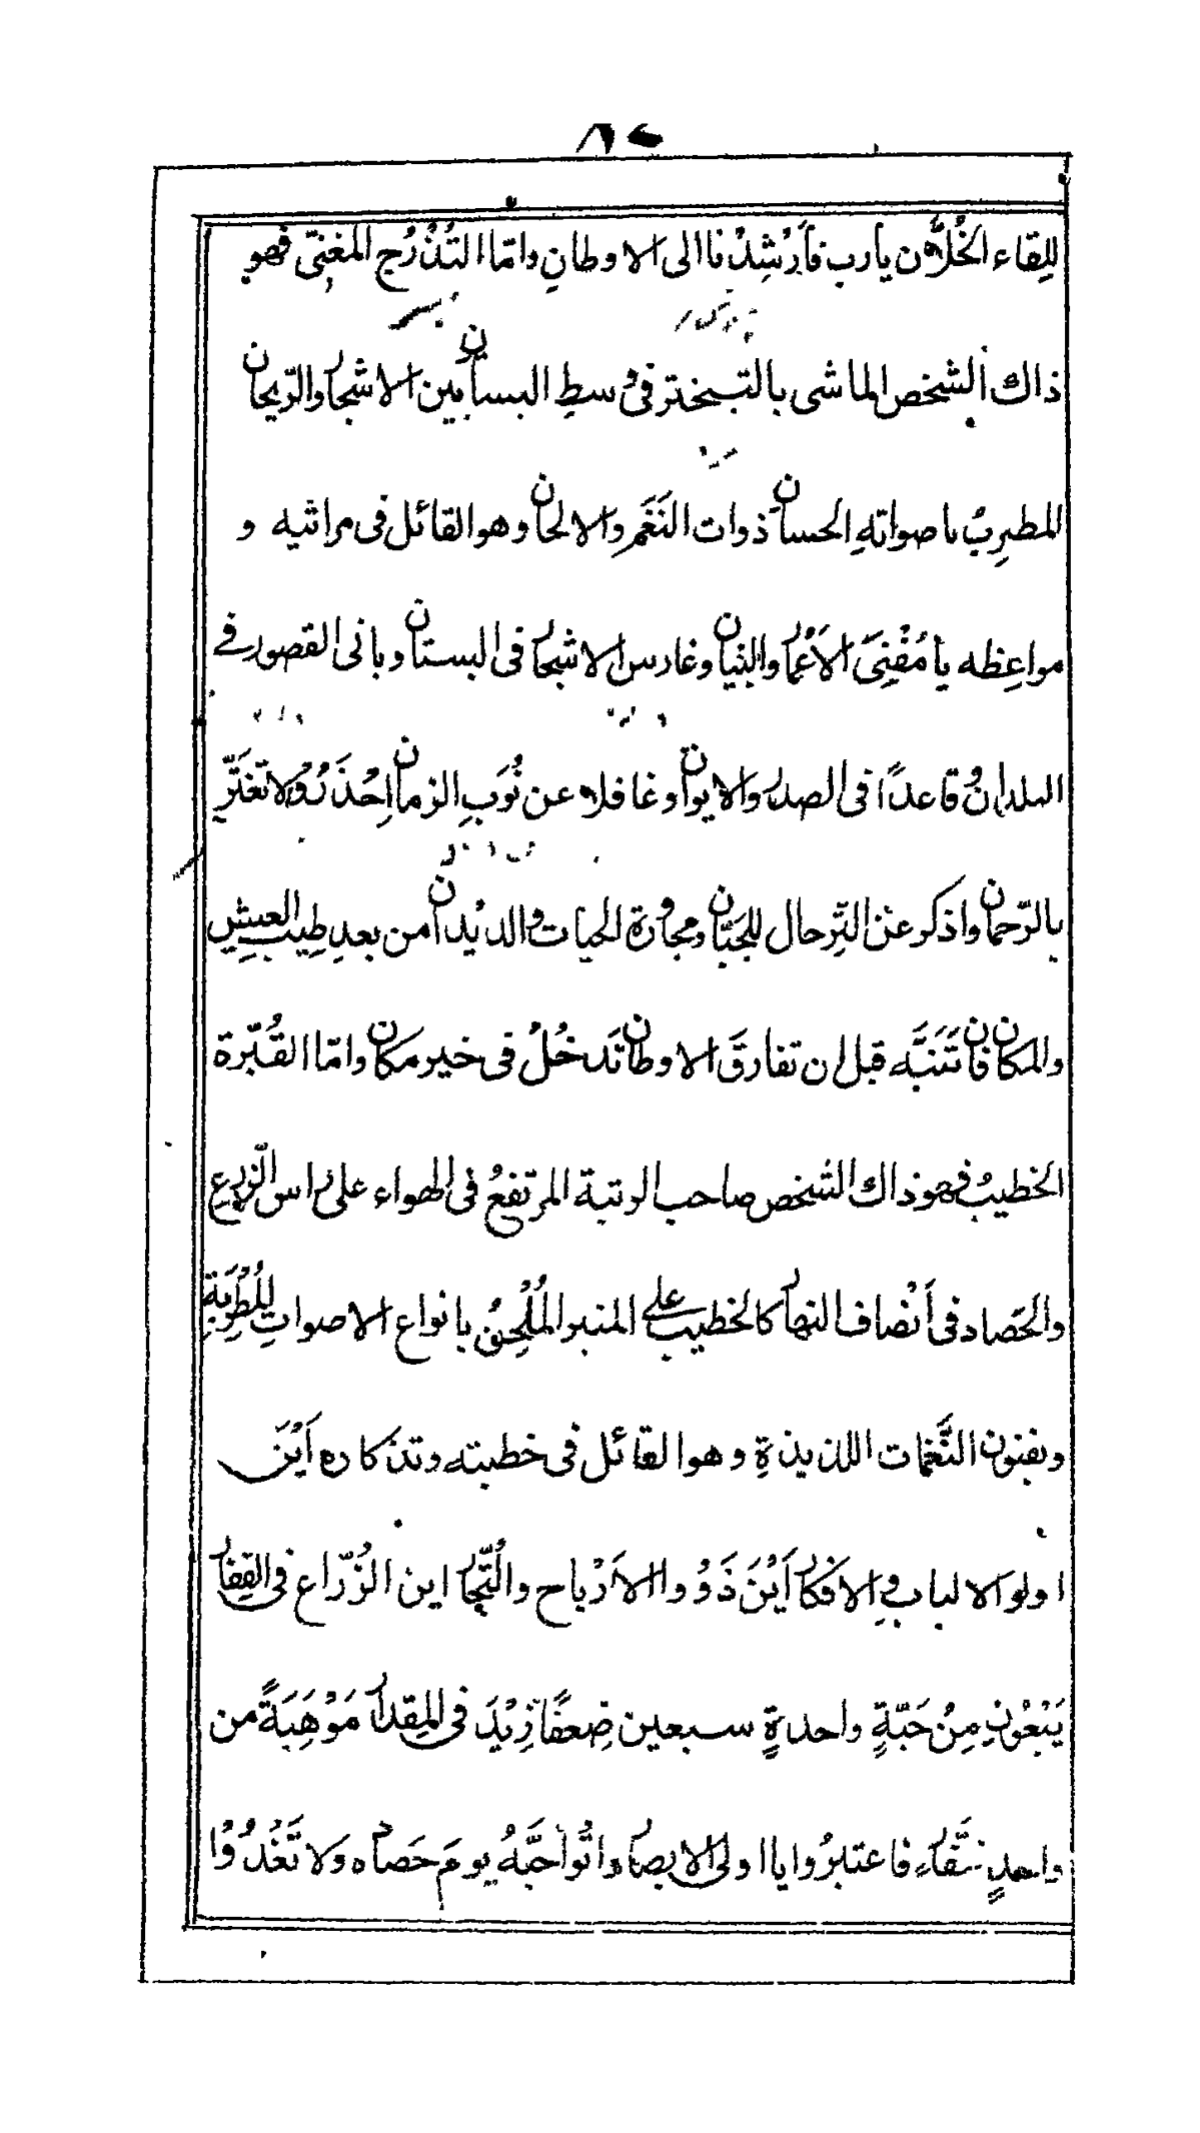 للِقاء الخُلاّن يارب فأرْشِدْنا الى الاوطانِ وامّا التُذْرُج المغنّى فهو
ذاك الشخص الماشى بالتبختر فى وسطِ البستان بين الاشجار والرّيحان
المطرِبُ باصواتهِ الحسانِ ذوات النَغَم والالحان وهو القائل فى مراثيه و
مواعِظه يا مُفْنِىَ الاَعْمار والبنيان وغارس الاشجار فى البستان وبانى القصور فے
البلدان وُقاعدًا فى الصدر والايوان وغافلا عن نُوَبِ الزمان اِحْذَرْ ولا تَغْتَرّ
بالرّحمان واذكر عن التِّرحال للجَبّان ومجاورة الحيات والديْدان من بعدِ طِيب العيشِ
والمكان فان تَتَنَبَّه قبل ان تفارقَ الاوطان تَدخُلُ فى خير مكان وامّا القُبّرة
الخطيبُ فهو ذاك الشخص صاحب الرتبة المرتفعُ فى الهواء على راس الزرع
والحَصاد فى اَنْصاف النهار كالخطيب على المنبر المُلْحِنُ بانواع الاصواتِ المُطْرِبَةِ
وبفنون النَّغَمات اللذيذةِ وهو القائل فى خطبته وتذكاره اَيْنَ
اولو الالباب والافكار اَيْنَ ذَوُوا الاَرْباح والتُّجار اين الزُرّاع فى القِفار
يَبْغُونَ مِنْ حَبّةٍ واحدةٍ سبعين ضِعفًا زِيْدَ فى المِقدار مَوْهِبَةً من
واحدٍ غفّار فاعتبرُوا يا اولى الابصار واتُوا حَقَّهُ يومَ حَصاده ولا تَغْدُوْا